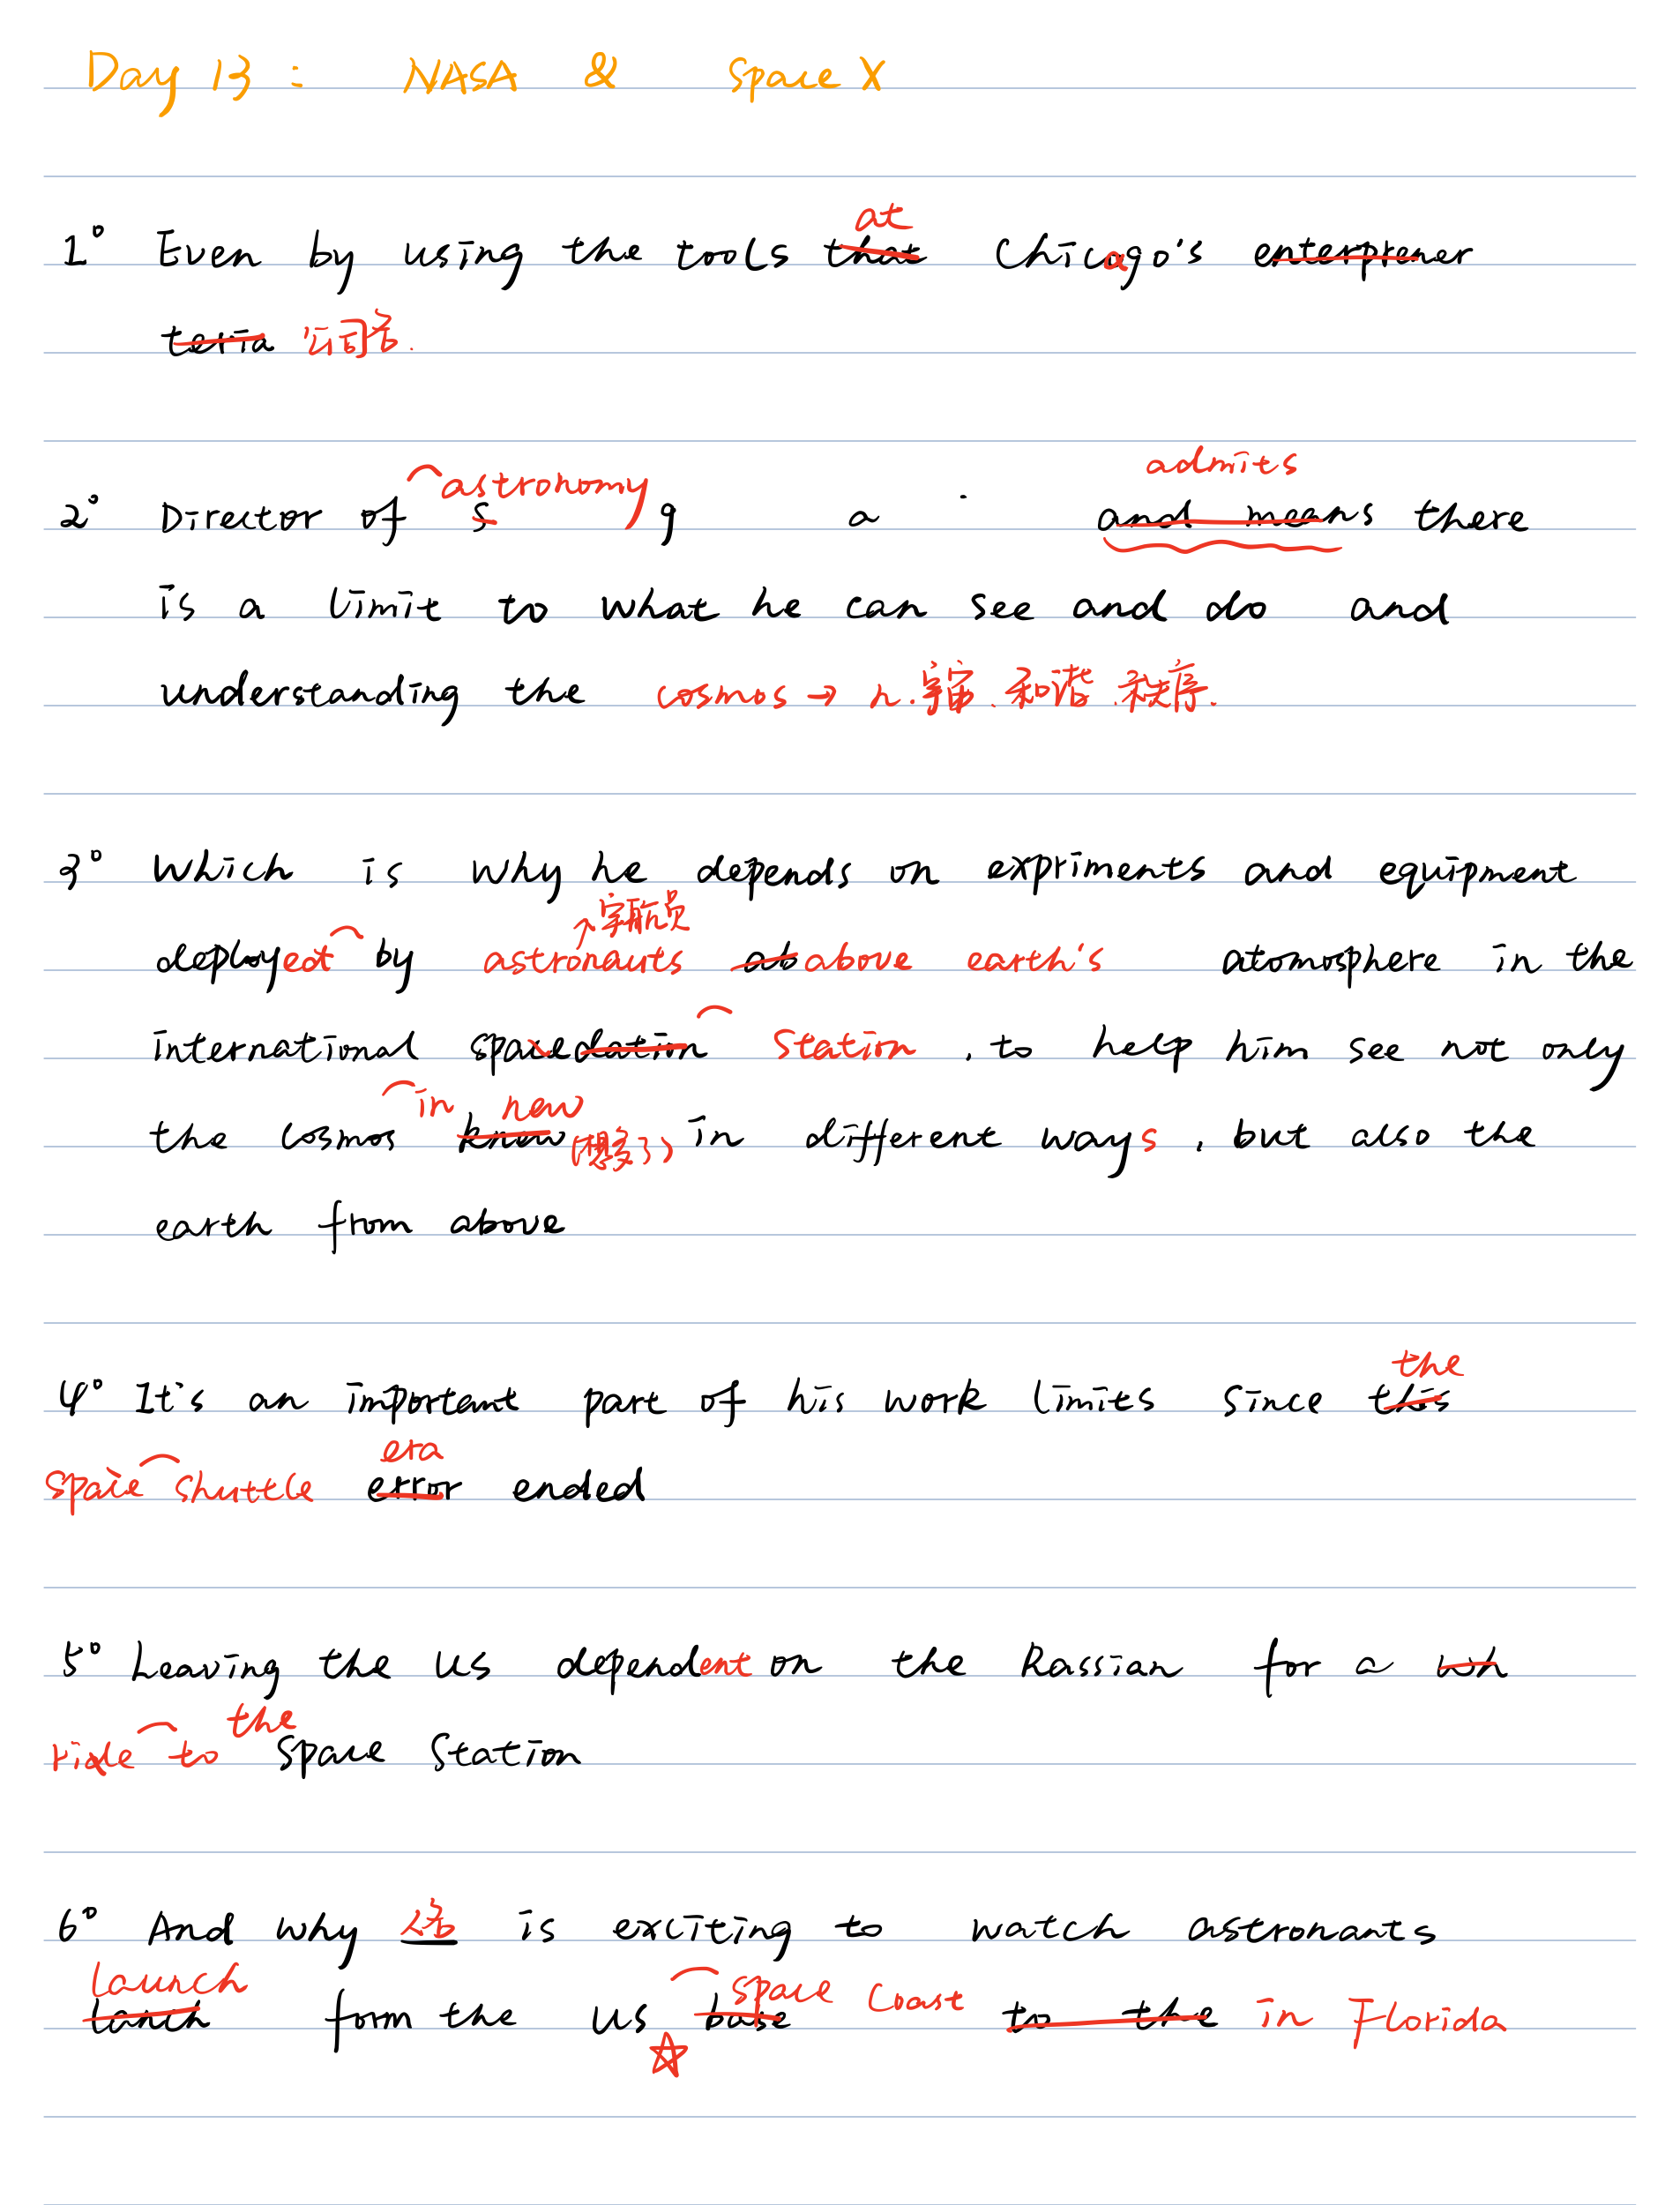 Day 13 : NASA & Space X
at
1° Even by using the tools that Chicago's enterprener
teria 公司名.
astronomy admits
2° Director of s g a and means there
is a limit to what he can see and do and
understanding the cosmos → n.宇宙.和谐.秩序.
3° Which is why he depends on expriments and equipment
宇航员
deployed by astronauts ab above earth's atomosphere in the
international space dation Station , to help him see not only
in new
the cosmos know (想多了) in different ways , but also the
earth from above
the
4° It's an important part of his work limits since this
era
space shuttle error ended
5° Leaving the US dependent on the Rassian for a wh
the
ride to space station
6° And why 人名 is exciting to watch astronants
launch space coast
lanch form the US base to the in Florida